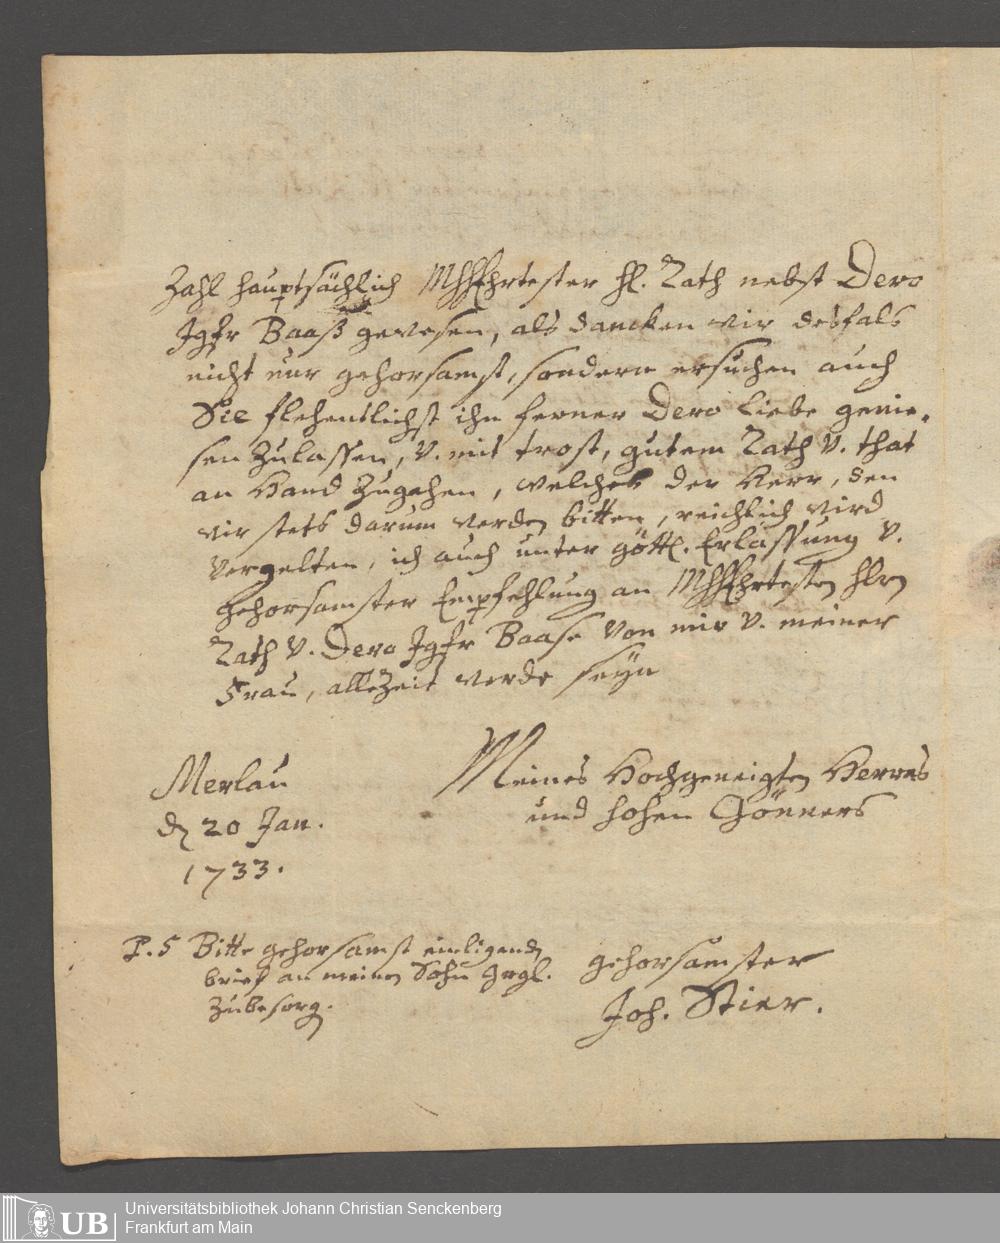 Zahl hauptsächlich MhhEhrtester H. Rath nebst Dero
Jgfr Baaß gewesen, als dancken wir desfals
nicht nur gehorsamst, sondern ersuchen auch
Sie flehentlichst ihn ferner Dero Liebe genie-
sen zulassen, v. mit trost, gutem Rath v. that
an Hand zugehen, welches der Herr, den
wir stets darum werden bitten, reichlich wird
vergelten, ich auch unter göttl. Erlassung v.
gehorsamster Empfehlung an MhhEhrtesten Hrn
Rath v. Dero Jgfr Baase von mir v. meiner
Frau, allezeit werde seyn
Meines Hochgeneigten Herrns
und hohen Gönners
Merlau
d. 20 Jan.
1733.
gehorsamster
Joh. Stier.
P. S Bitte gehorsamst einligenden
brief an meinen Sohn grgl.
zubesorg.
Universitätsbibliothek Johann Christian Senckenberg
Frankfurt am Main
UB